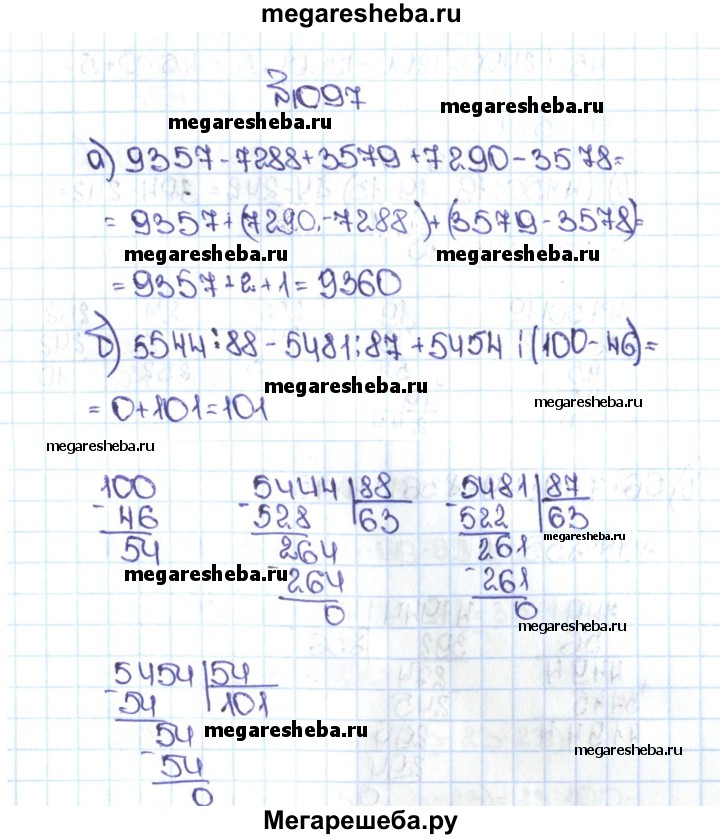 megaresheba.ru
№1097
megaresheba.ru megaresheba.ru
а) 9357-7288+3579+7290-3578=
= 9357+(7290-7288)+(3579-3578)=
megaresheba.ru megaresheba.ru
= 9357+2+1=9360
б) 5544:88-5481:87+5454:(100-46)=
megaresheba.ru
= 0+101=101 megaresheba.ru
megaresheba.ru
100 5444 88 5481 87
- 46 - 528 63 - 522 63
megaresheba.ru
54 264 261
megaresheba.ru - 264 - 261
0 0
megaresheba.ru
5454 54
- 54 101
megaresheba.ru
54 megaresheba.ru
- 54
0
Мегарешеба.ру